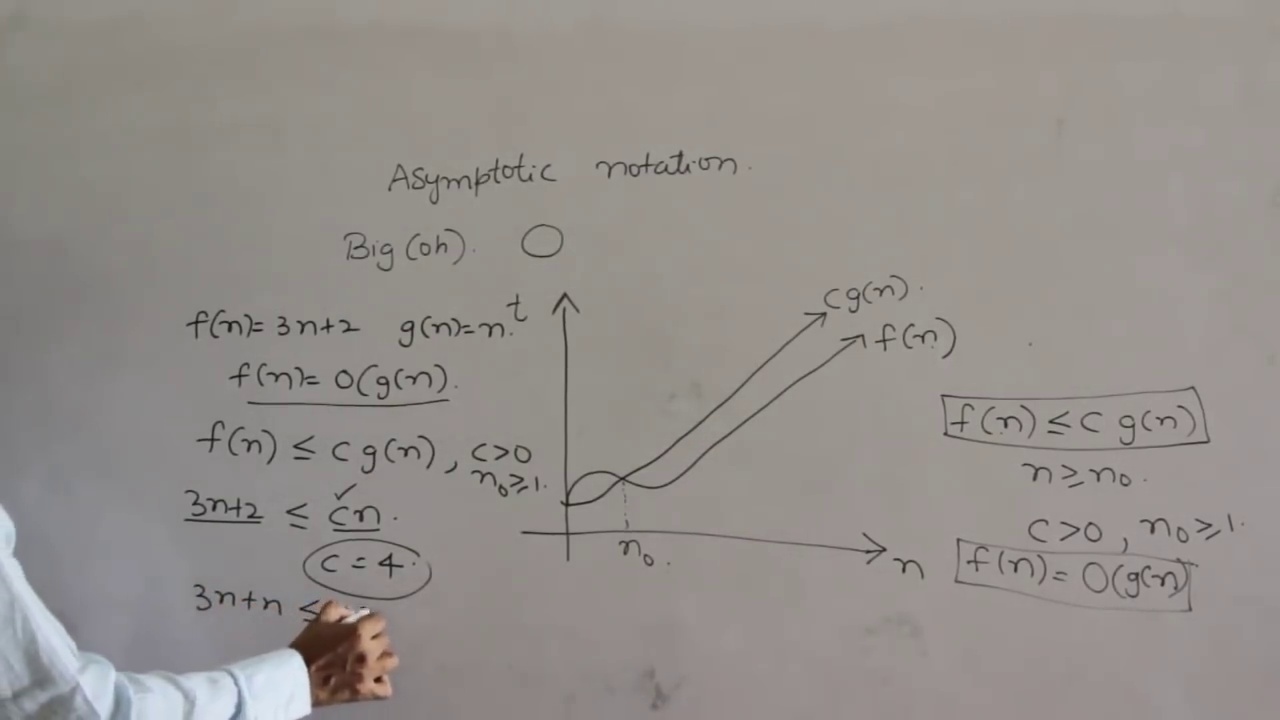 Asymptotic notation.
Big(oh). O
f(n)= 3n+2 g(n)=n.
f(n)= O(g(n).
f(n) ≤ c g(n), c>0
n₀≥1.
3n+2 ≤ cn.
c = 4.
3n+n ≤
t
cg(n).
f(n)
n₀.
n
f(n) ≤ c g(n)
n ≥ n₀.
c>0, n₀≥1.
f(n)= O(g(n)